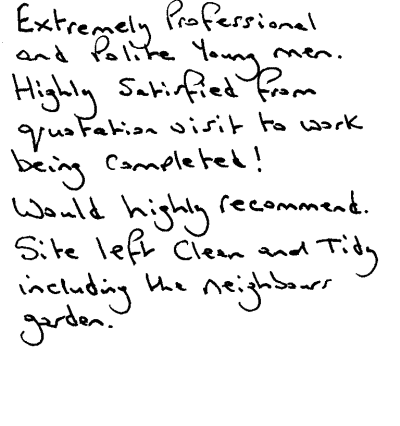 Extremely Professional
and Polite Young men.
Highly Satisfied from
quotation visit to work
being completed!
Would highly recommend.
Site left Clean and Tidy
including the neighbours
garden.